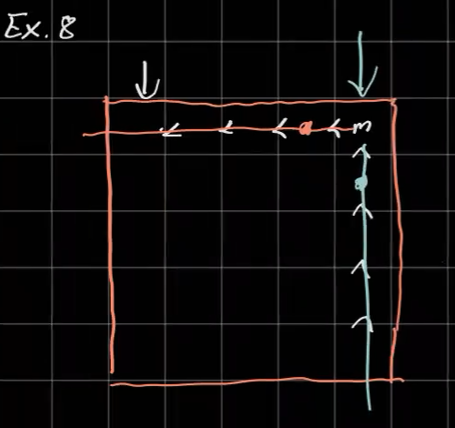 Ex. 8
m